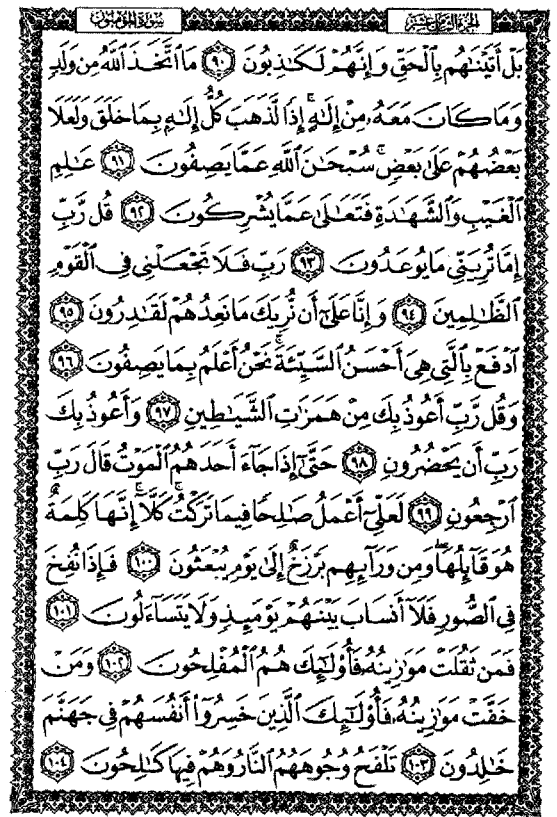 سورة المؤمنون
الجزء الثامن عشر
بَلْ أَتَيْنَٰهُم بِٱلْحَقِّ وَإِنَّهُمْ لَكَٰذِبُونَ ٩٠ مَا ٱتَّخَذَ ٱللَّهُ مِن وَلَدٍ
وَمَا كَانَ مَعَهُۥ مِنْ إِلَٰهٍ ۚ إِذًا لَّذَهَبَ كُلُّ إِلَٰهٍۭ بِمَا خَلَقَ وَلَعَلَا
بَعْضُهُمْ عَلَىٰ بَعْضٍ ۚ سُبْحَٰنَ ٱللَّهِ عَمَّا يَصِفُونَ ٩١ عَٰلِمِ
ٱلْغَيْبِ وَٱلشَّهَٰدَةِ فَتَعَٰلَىٰ عَمَّا يُشْرِكُونَ ٩٢ قُل رَّبِّ
إِمَّا تُرِيَنِّى مَا يُوعَدُونَ ٩٣ رَبِّ فَلَا تَجْعَلْنِى فِى ٱلْقَوْمِ
ٱلظَّٰلِمِينَ ٩٤ وَإِنَّا عَلَىٰٓ أَن نُّرِيَكَ مَا نَعِدُهُمْ لَقَٰدِرُونَ ٩٥
ٱدْفَعْ بِٱلَّتِى هِىَ أَحْسَنُ ٱلسَّيِّئَةَ ۚ نَحْنُ أَعْلَمُ بِمَا يَصِفُونَ ٩٦
وَقُل رَّبِّ أَعُوذُ بِكَ مِنْ هَمَزَٰتِ ٱلشَّيَٰطِينِ ٩٧ وَأَعُوذُ بِكَ
رَبِّ أَن يَحْضُرُونِ ٩٨ حَتَّىٰٓ إِذَا جَآءَ أَحَدَهُمُ ٱلْمَوْتُ قَالَ رَبِّ
ٱرْجِعُونِ ٩٩ لَعَلِّىٓ أَعْمَلُ صَٰلِحًا فِيمَا تَرَكْتُ ۚ كَلَّآ ۚ إِنَّهَا كَلِمَةٌ
هُوَ قَآئِلُهَا ۖ وَمِن وَرَآئِهِم بَرْزَخٌ إِلَىٰ يَوْمِ يُبْعَثُونَ ١٠٠ فَإِذَا نُفِخَ
فِى ٱلصُّورِ فَلَآ أَنسَابَ بَيْنَهُمْ يَوْمَئِذٍ وَلَا يَتَسَآءَلُونَ ١٠١
فَمَن ثَقُلَتْ مَوَٰزِينُهُۥ فَأُو۟لَٰٓئِكَ هُمُ ٱلْمُفْلِحُونَ ١٠٢ وَمَنْ
خَفَّتْ مَوَٰزِينُهُۥ فَأُو۟لَٰٓئِكَ ٱلَّذِينَ خَسِرُوٓا۟ أَنفُسَهُمْ فِى جَهَنَّمَ
خَٰلِدُونَ ١٠٣ تَلْفَحُ وُجُوهَهُمُ ٱلنَّارُ وَهُمْ فِيهَا كَٰلِحُونَ ١٠٤